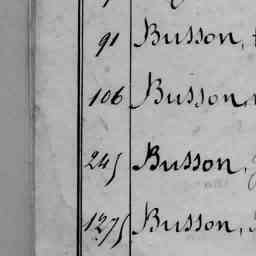 91 Busson,
106 Busson,
245 Busson,
1275 Busson,